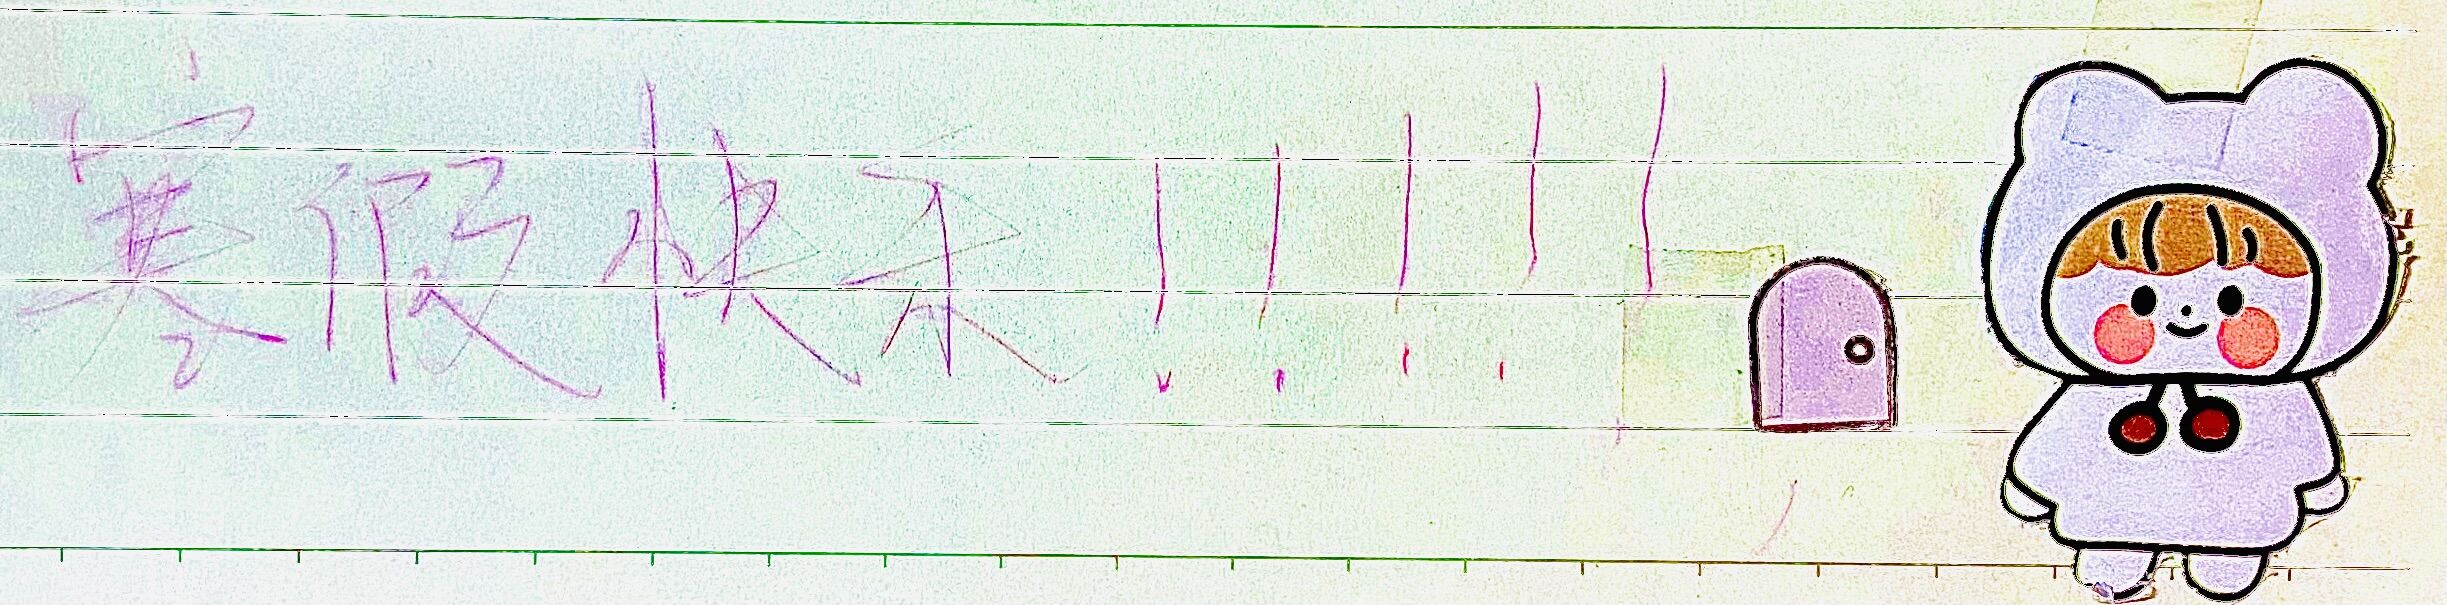 寒假快乐！！！！！